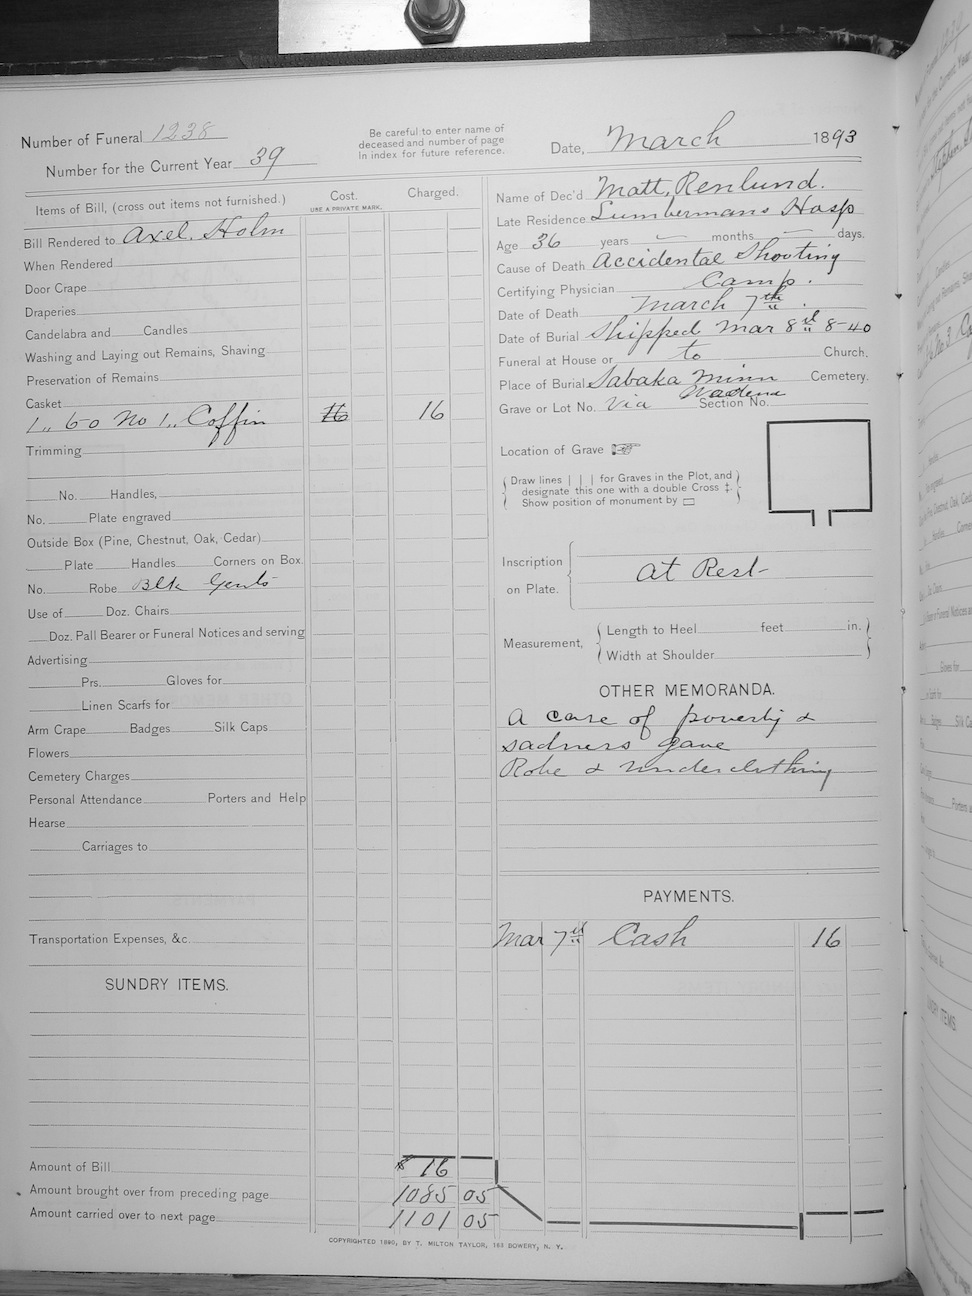 Number of Funeral 1238
Number for the Current Year 39
Be careful to enter name of
deceased and number of page
In index for future reference.
Date, March 1893
Items of Bill, (cross out items not furnished.)
Cost.
USE A PRIVATE MARK.
Charged.
Bill Rendered to Axel. Holm
When Rendered
Door Crape
Draperies
Candelabra and Candles
Washing and Laying out Remains, Shaving
Preservation of Remains
Casket
1,, 6-0 No 1,, Coffin 16 16
Trimming
No. Handles,
No. Plate engraved
Outside Box (Pine, Chestnut, Oak, Cedar)
Plate Handles Corners on Box.
No. Robe Blk Gents
Use of Doz. Chairs
Doz. Pall Bearer or Funeral Notices and serving
Advertising
Prs. Gloves for
Linen Scarfs for
Arm Crape Badges Silk Caps
Flowers
Cemetery Charges
Personal Attendance Porters and Help
Hearse
Carriages to
Transportation Expenses, &c.
SUNDRY ITEMS.
Amount of Bill $ 16
Amount brought over from preceding page 1085 05
Amount carried over to next page 1101 05
Name of Dec'd Matt, Renlund.
Late Residence Lumbermans Hosp
Age 36 years months days.
Cause of Death Accidental Shooting
Certifying Physician Camp.
Date of Death March 7th.
Date of Burial Shipped Mar 8th 8-40
Funeral at House or to Church.
Place of Burial Sabaka Minn Cemetery.
Grave or Lot No. Via Wadena Section No.
Location of Grave
Draw lines | | | for Graves in the Plot, and
designate this one with a double Cross ‡.
Show position of monument by ▭
Inscription
on Plate.
At Rest
Measurement,
Length to Heel feet in.
Width at Shoulder
OTHER MEMORANDA.
A case of poverty &
sadness gave
Robe & underclothing
PAYMENTS.
Mar 7th Cash 16
COPYRIGHTED 1890, BY T. MILTON TAYLOR, 163 BOWERY, N. Y.